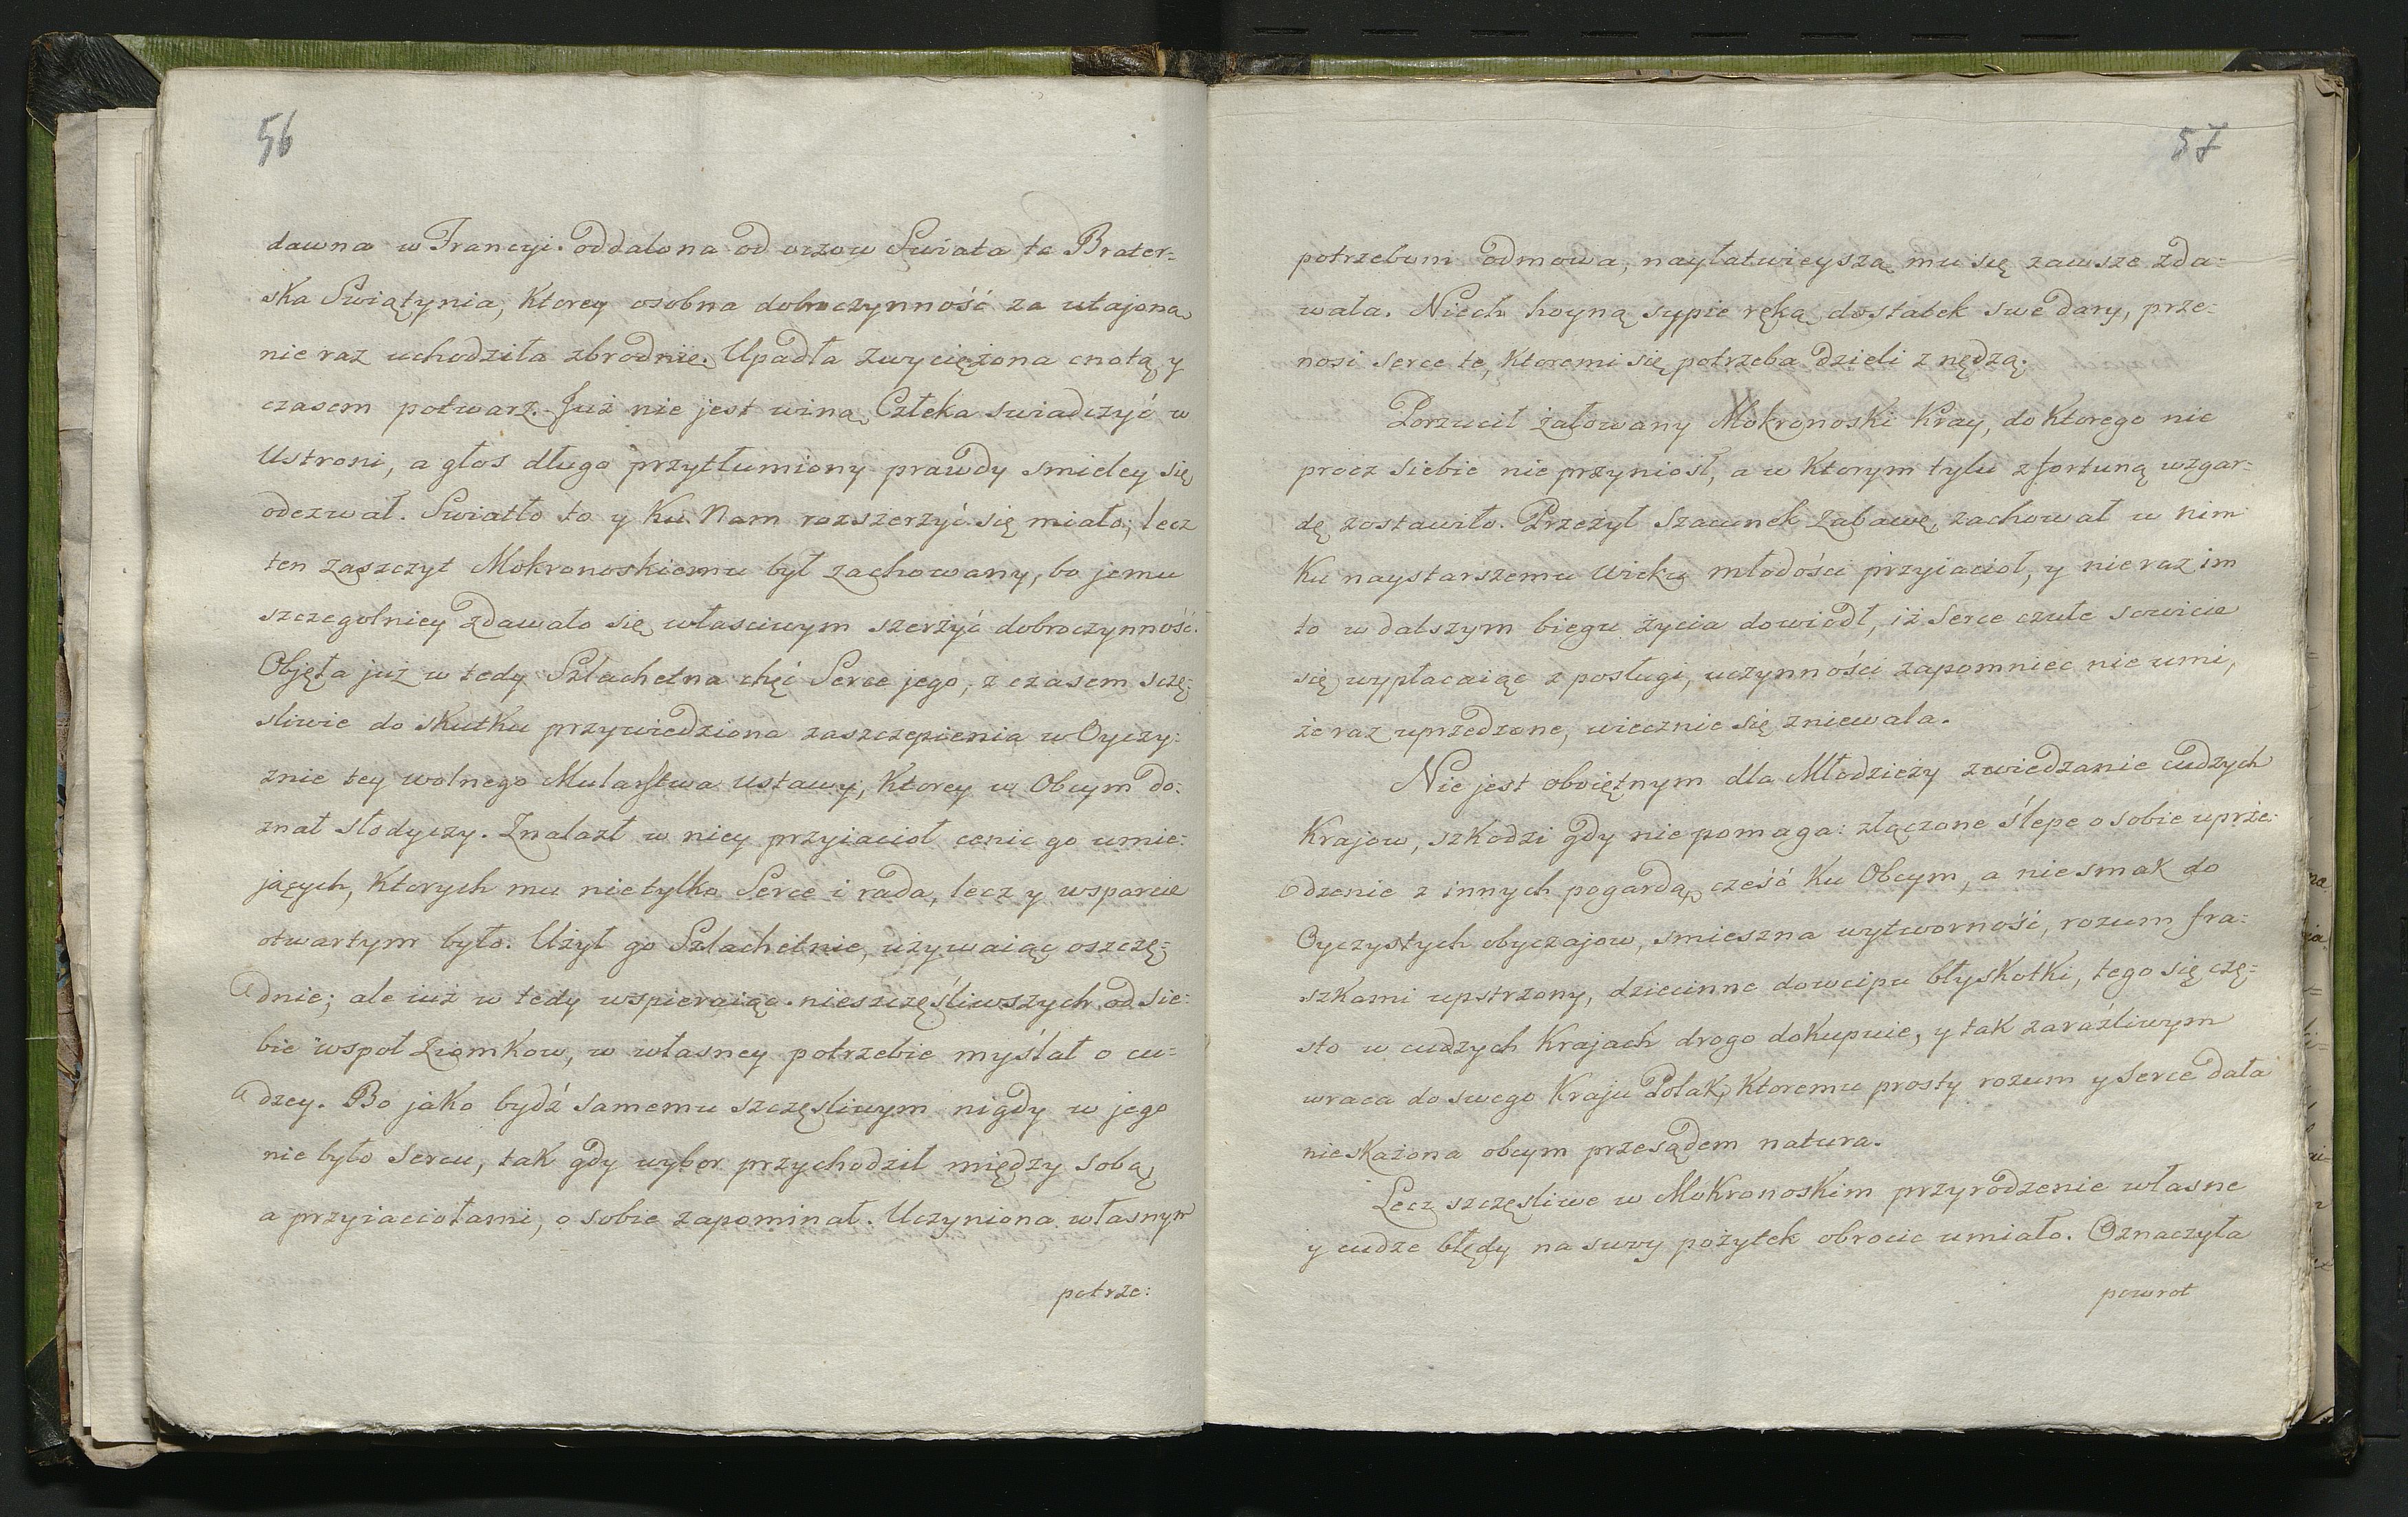 56
dawna w Francyi. oddalona od oczow Swiata ta Brater=
ska Swiątynia, Ktorey osobna dobroczynność za utajoną
nie raz uchodziła zbrodnię. Upadła zwyciężona cnotą y
czasem potwarz. Już nie jest winą Człeka swiadczyć w
Ustroni, a głos długo przytłumiony prawdy smieley się
odezwał. Swiatło to y Ku Nam rozszerzyć się miało; lecz
ten zaszczyt Mokronoskiemu był zachowany, bo jemu
szczegolniey zdawało się właściwym szerzyć dobroczynność.
Objęła już w tedy Szlachetna chęć Serce jego, z czasem szczę=
sliwie do skutku przywiedziona zaszczepienia w Oyczy=
znie tey wolnego Mularstwa ustawy, Ktorey w Obcym do=
znał słodyczy. Znalazł w niey przyiacioł cenic go umie=
jących, Ktorych mu nietylko Serce i rada, lecz y wsparcie
otwartym było. Użył go Szlachetnie, używaiąc oszczę=
dnie; ale iuż w tedy wspieraiąc nieszczęśliwszych od sie=
bie wspoł Ziomkow, w własney potrzebie myślał o cu=
dzey. Bo jako bydź samemu szczęsliwym nigdy w jego
nie było Sercu, tak gdy wybor przychodził między sobą
a przyiaciołami, o sobie zapominał. Uczyniona własnym
potrze:
57
potrzebom odmowa, nayłatwieyszą mu się zawsze zda=
wała. Niech hoyną sypie ręką dostatek swe dary, prze=
nosi serce te, Ktoremi się potrzeba dzieli z nędzą.
Porzucił żałowany Mokronoski Kray, do Ktorego nic
procz siebie nie przyniosł, a w Ktorym tylu z fortuną wzgar=
dę zostawiło. Przeżył Szacunek Zabawę, zachował w nim
Ku naystarszemu Wieku młodości przyiacioł, y nie raz im
to w dalszym biegu życia dowiodł, iż Serce czułe sowicie
się wypłacaiąc z posługi, uczynności zapomniec nie umi,
że raz uprzedzone, wiecznie się zniewala.
Nie jest oboiętnym dla Młodzieży zwiedzanie cudzych
Krajow, szkodzi gdy nie pomaga: złączone ślepe o sobie uprze=
dzenie z innych pogardą, cześć Ku Obcym, a niesmak do
Oyczystych obyczajow, smieszna wytworność, rozum fra=
szkami upstrzony, dziecinne dowcipu błyskotki, tego się czę=
sto w cudzych Krajach drogo dokupuie, y tak zaraźliwym
wraca do swego Kraju Polak, Ktoremu prosty rozum y Serce dała
nieskażona obcym przesądem natura.
Lecz szczęsliwe w Mokronoskim przyrodzenie własne
y cudze błędy na swoy pożytek obrocic umiało. Oznaczyła
powrot